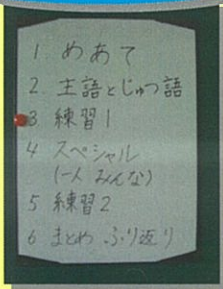 1. めあて
2. 主語とじゅつ語
3 練習1
4 スペシャル
(一人 みんな)
5 練習2
6 まとめ ふり返り